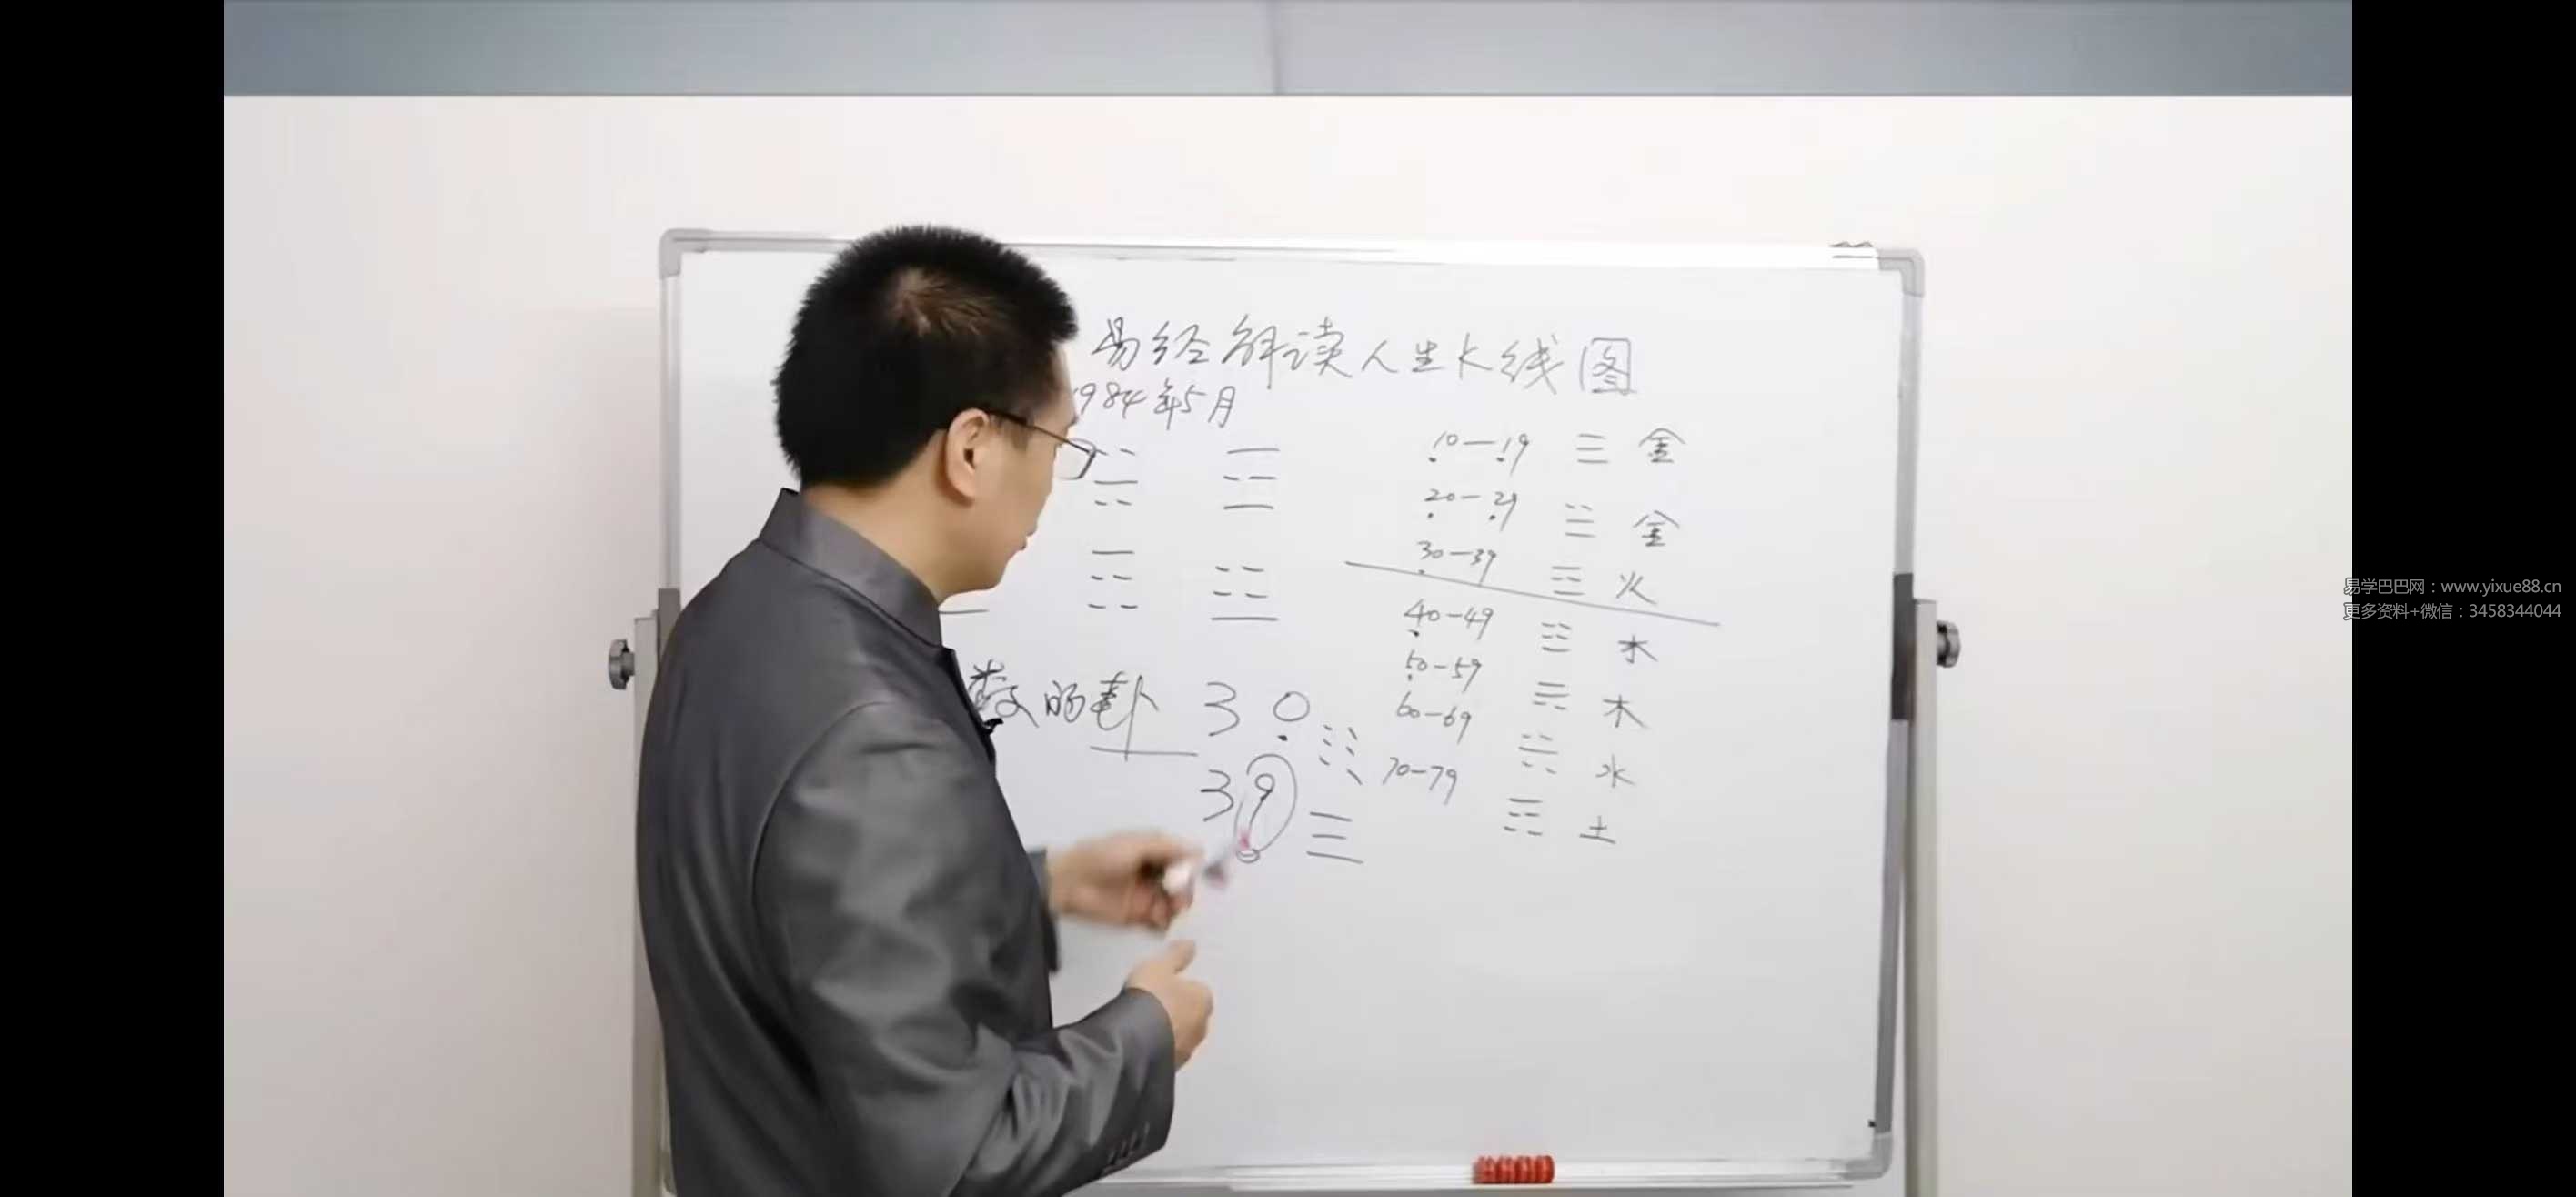 易经解读人生K线图
1984年5月
10—19 ☰ 金
20—29 ☱ 金
30—39 ☲ 火
40—49 ☳ 木
50—59 ☴ 木
60—69 ☵ 水
70—79 ☶ 土
数的卦 30 ☳
39 ☰
易学巴巴网：www.yixue88.cn
更多资料+微信：3458344044